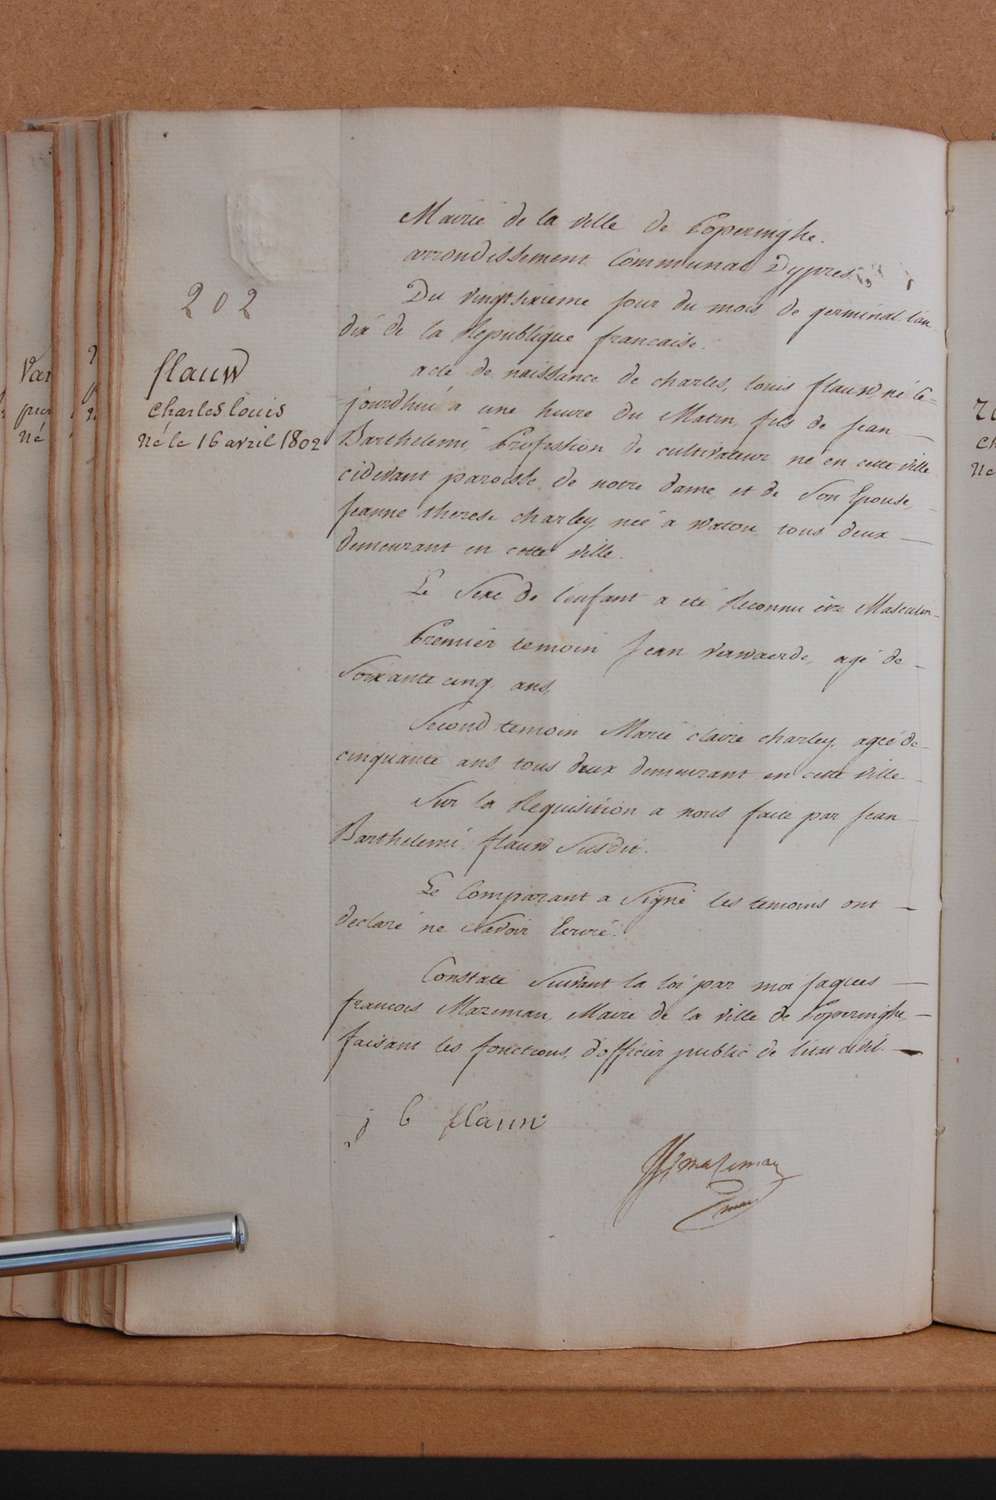 202
flauw
Charles louis
né le 16 avril 1802
Mairie de la ville de Poperinghe.
arrondissement Communal Dypres
Du vingtsixieme jour du mois de germinal l'an
dix de la Republique francaise.
acte de naissance de charles, louis flauw, né ce-
jourdhui a une heure du Matin, fils de jean
Barthelemi, Profession de cultivateur né en cette ville
cidevant paroisse de notre dame, et de Son Epouse,
jeanne therese charley née a watou tous deux
demeurant en cette ville.
Le Sexe de l'enfant a eté Reconnu être Masculin
Premier temoin jean verwaerde, agé de
Soixante cinq ans,
Second temoin Marie claire charley, agée de
cinquante ans tous deux demeurant en cette ville
Sur la Requisition a nous faite par jean
Barthelemi flauw Susdit.
Le Comparant a Signé les temoins ont
declaré ne Savoir Ecrire.
Constaté Suivant la loi par moi jaques
francois Mazeman, Maire de la ville de Poperinghe
faisant les fonctions, dofficier public de l'etat civil.
j b flauw
mazeman
Van
né